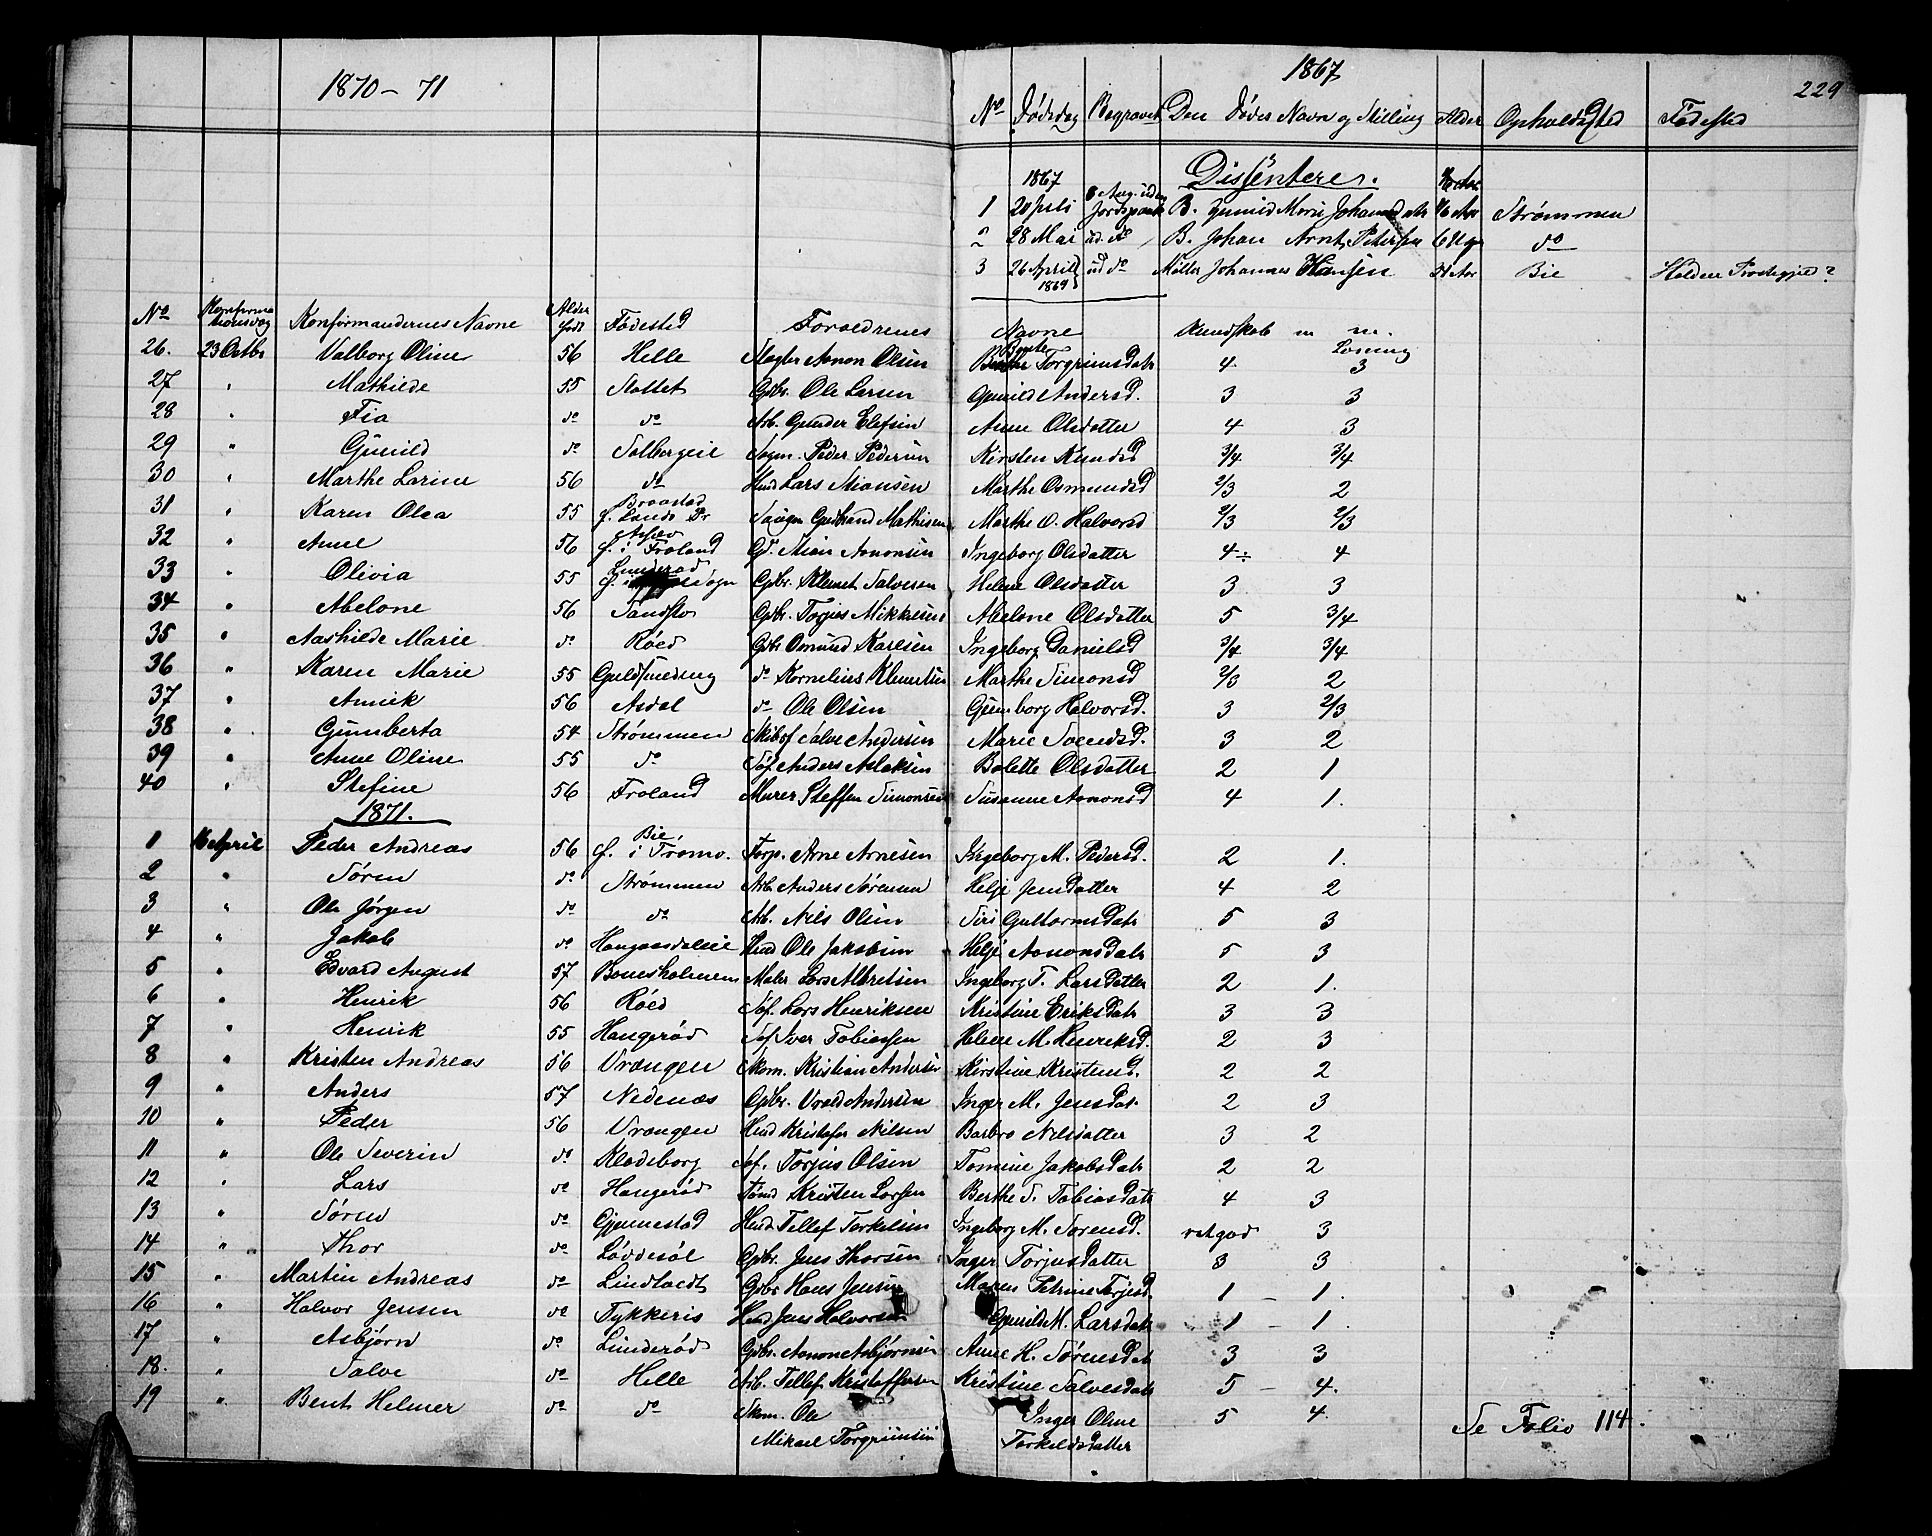 1870-71
1867
229
No Dødsdag Begravet Den Dødes Navn og Stilling Alder Opholdssted Fødested
1867 Dissentere.
1 20 Juli 8 Aug. uden Jordspaak B. Gunild Marie Johansdatr Strømmen
2 28 Mai ud. do B. Johan Arnt Petersen do
3 26 April 1869 ud do Møller Johannes Hansen Bie Holden
No Konfirmationsdag Konfirmandernes Navne Alder født Fødested Forældrenes Navne Kundskab m m. Læsning
26. 23 Octbr Valborg Oline 56 Helle Aanon Olsen Torgrimsdatr 4 3
27 " Mathilde 55 Slottet Gbr. Ole Larsen Gunild Andersd. 3 3
28 " Fia do do Arb. Gunder Elefsen Anne Olsdatter 4 3
29 " Gunild do Solbergeie Peder Pedersen Kirsten Knudsd 3/4 3/4
30 " Marthe Larine 56 do Husmd Lars Mionsen Marthe Osmundsd 2/3 2
31 " Karen Olea 55 Braastad f. Lands Pr Gudbrand Mathisen Marthe O. Halvorsd 2/3 2/3
32 " Anne 56 f. i Froland Gd. Aanonsen Ingeborg Olsdatter 4÷ 4
33 " Olivia 55 Lunderød Sogn Gbr. Klemet Salvesen Helene Olsdatter 3 3
34 " Abelone 56 Sandsto Gbr. Torjus Mikkelsen Abelone Olsdatter 5 3/4
35 " Aashilde Marie do Røed Gbr Omund Karlsen Ingeborg Danielsd 3/4 3/4
36 " Karen Marie 55 Guldsmedeng do Kornelius Klemetsen Marthe Simonsd 2/3 2
37 " Annik 56 Asdal do Ole Olsen Gunborg Halvorsd. 3 2/3
38 " Gunnberta 54 Strømmen Salve Andersen Marie Svendsd. 3 2
39 " Anne Oline 55 do Søf Anders Aslaksen Bolette Olsdatter 2 1
40 " Stefine 56 Froland Murer Steffen Simonsen Susanne Aanonsd 4 1.
1871.
1 16 April Peder Andreas 56 Bie f. i Tromø. Torp. Arne Arnesen Ingeborg M. Pedersd. 2 1.
2 " Søren do Strømmen Arb. Anders Sørensen Helje Jensdatter 4 2
3 " Ole Jørgen do do Arb. Nils Olsen Siri Guttormsdatr 5 3
4 " Jakob do Haugaasdaleie Husmd Ole Jakobsen Helje Aanonsdatr 5 3
5 " Edvard August 57 Bonesholmen Maler Lars Albretsen Ingeborg T. Larsdatter 2 1.
6 " Henrik 56 Røed Søf. Lars Henriksen Kristine Eriksdatr 3 3
7 " Henrik 55 Haugerød Søf Iver Tobiassen Helene M. Henriksd. 2 3
8 " Kristen Andreas 56 Vrængen Skom. Kristian Andersen Kirstine Kristensd. 2 2
9 " Anders 57 Nedenæs Gbr. Andersen Inger M. Jensdatr 2 3
10 " Peder 56 Vrængen Husmd Kristofer Nilsen Barbro Nilsdatter 3 2
11 " Ole Severin do Klodeborg Søf. Torjus Olsen Tomine Jakobsdatr 2 2
12 " Lars do Haugerød Tømd Kristen Larsen Berthe S. Tobiasdatr 4 3
13 " Søren do Gjennestad Husmd Tellef Terkelsen Ingeborg M. Sørensd. retgod 3
14 " Thor do Løddesøl Gbr. Jens Thorsen Inger Torjusdatter 3 3
15 " Martin Andreas do Lindtvedt Gbr Hans Jensen Maren Petrine Terjesd. 1 - 1.
16 " Halvor Jensen do Tykkeris Husmd Jens Halvorsen Gunild M. Larsdatr 1 - 1.
17 " Asbjørn do Lunderød Gbr. Aanon Asbjørnsen Anne H. Sørensdatr 3 3
18. " Salve do Helle Arb. Tellef Kristoffersen Kristine Salvesdatr 5 - 4.
19 " Bent Helmer do do Skom. Ole Inger Oline 5 4.
Mikael Torgrimsen Torkildsdatter
Se Folio 114.